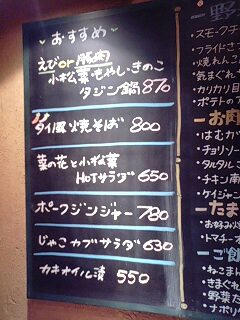 おすすめ
えびor豚肉
小松菜・もやし・きのこ
タジン鍋 870
タイ風焼そば 800
菜の花と小松菜
HOTサラダ 650
ポークジンジャー 780
じゃこカブサラダ 630
カキオイル漬 550
野
スモークチ
フライドさ
焼きれんこ
気まぐれ
カリカリ
ポテトの
お肉
はむカツ
チョリソー
タルタル
チキン南
ケイジャン
たま
お好み焼
トマトチー
ご飯
ねこまん
きまぐれ
野菜た
ナポリ